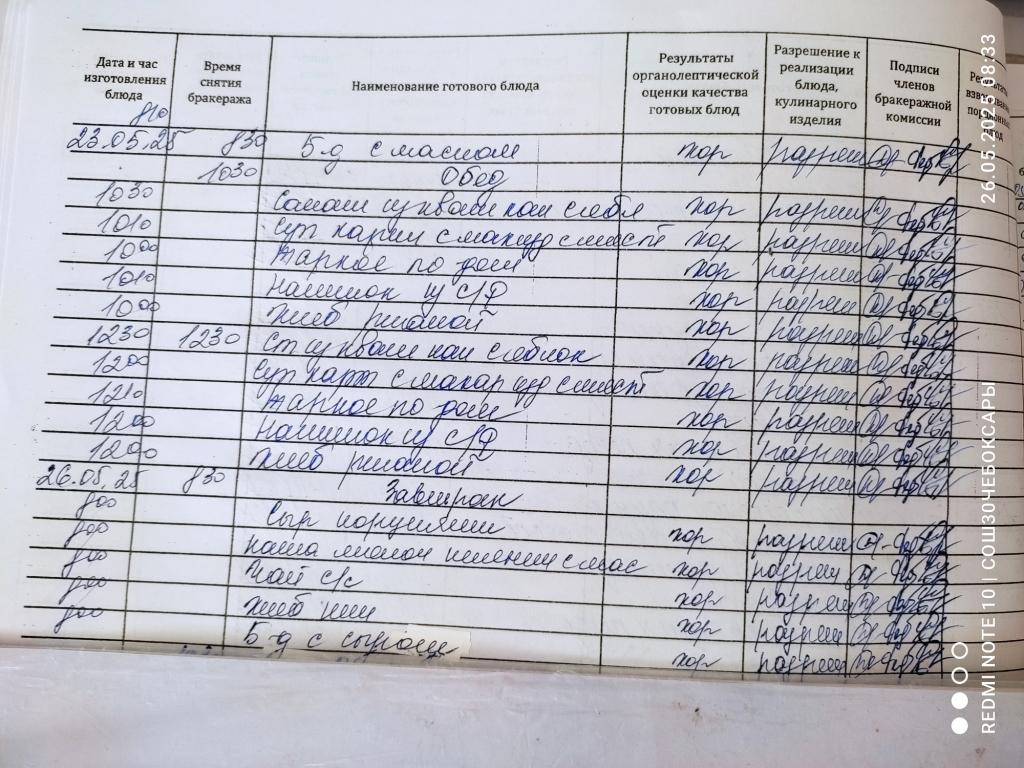 Дата и час изготовления блюда
Время снятия бракеража
Наименование готового блюда
Результаты органолептической оценки качества готовых блюд
Разрешение к реализации блюда, кулинарного изделия
Подписи членов бракеражной комиссии
810
23.05.25 830 Б-д с маслом хор разреш
1030 Обед
1030 Салат из кваш кап с яблок хор разреш
1010 Суп карт с макар изд с мясом хор разреш
1000 Жаркое по дом хор разреш
1010 Напиток из С/Ф хор разреш
1000 Хлеб ржаной хор разреш
1230 1230 Ст из кваш кап с яблок хор разреш
1200 Суп карт с макар изд с мясом хор разреш
1210 Жаркое по дом хор разреш
1200 Напиток из С/Ф хор разреш
1200 Хлеб ржаной хор разреш
26.05.25 830 Завтрак
800 Сыр порциями хор разреш
800 Каша молоч с мас хор разреш
800 Чай с/с хор разреш
800 Хлеб пш хор разреш
800 Б-д с сыром хор разреш
26.05.2025 08:33
REDMI NOTE 10 | СОШ30ЧЕБОКСАРЫ